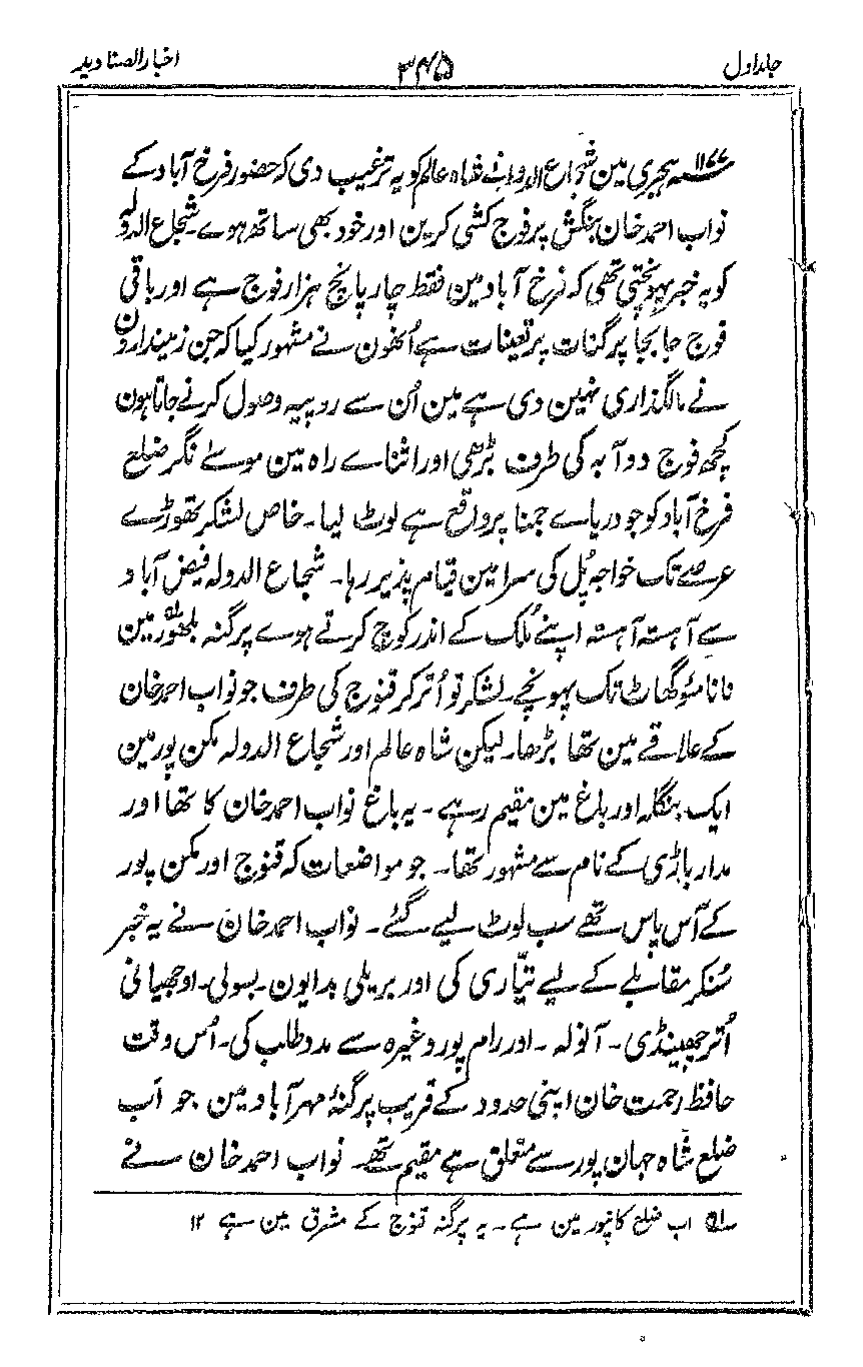 جلد اول ۳۴۵ اخبار الصنادید
۱۱۷۷ ہجری مین شجاع الدولہ نے شاہ عالم کو یہ ترغیب دی کہ حضور فرخ آباد کے
نواب احمد خان بنگش پر فوج کشی کرین اور خود بھی ساتھ ہوے۔ شجاع الدولہ
کو یہ خبر پہونچتی تھی کہ فرخ آباد مین فقط چار پانچ ہزار فوج ہے اور باقی
فوج جا بجا پرگنات پر تعینات ہے اُنھون نے مشہور کیا کہ جن زمیندارون
نے مالگذاری نہین دی ہے مین اُن سے روپیہ وصول کرنے جاتا ہون
کچھ فوج دوآبہ کی طرف بڑھی اور اثناے راہ مین موسے نگر ضلع
فرخ آباد کو جو دریاے جمنا پر واقع ہے لوٹ لیا۔ خاص لشکر تھوڑے
عرصے تک خواجہ پُل کی سرا مین قیام پذیر رہا۔ شجاع الدولہ فیض آباد
سے آہستہ آہستہ اپنے مُلک کے اندر کوچ کرتے ہوے پرگنہ بلھور؂۱ مین
نانامئو گھاٹ تک پہونچے۔ لشکر تو اُتر کر قنوج کی طرف جو نواب احمد خان
کے علاقے مین تھا بڑھا۔ لیکن شاہ عالم اور شجاع الدولہ مکن پور مین
ایک بنگلہ اور باغ مین مقیم رہے۔ یہ باغ نواب احمد خان کا تھا اور
مدار باڑی کے نام سے مشہور تھا۔ جو مواضعات کہ قنوج اور مکن پور
کے آس پاس تھے سب لوٹ لیے گئے۔ نواب احمد خان نے یہ خبر
سُنکر مقابلے کے لیے تیّاری کی اور بریلی بدایون۔ بسولی۔ اوجھیانی
اُترچھینڈی۔ آنولہ۔ اور رام پور وغیرہ سے مدد طلب کی۔ اُس وقت
حافظ رحمت خان اپنی حدود کے قریب پرگنۂ مہرآباد مین جو اَب
ضلع شاہ جہان پور سے متعلق ہے مقیم تھے۔ نواب احمد خان نے
؂۱ اب ضلع کانپور مین ہے۔ یہ پرگنہ قنوج کے مشرق مین ہے ۱۲